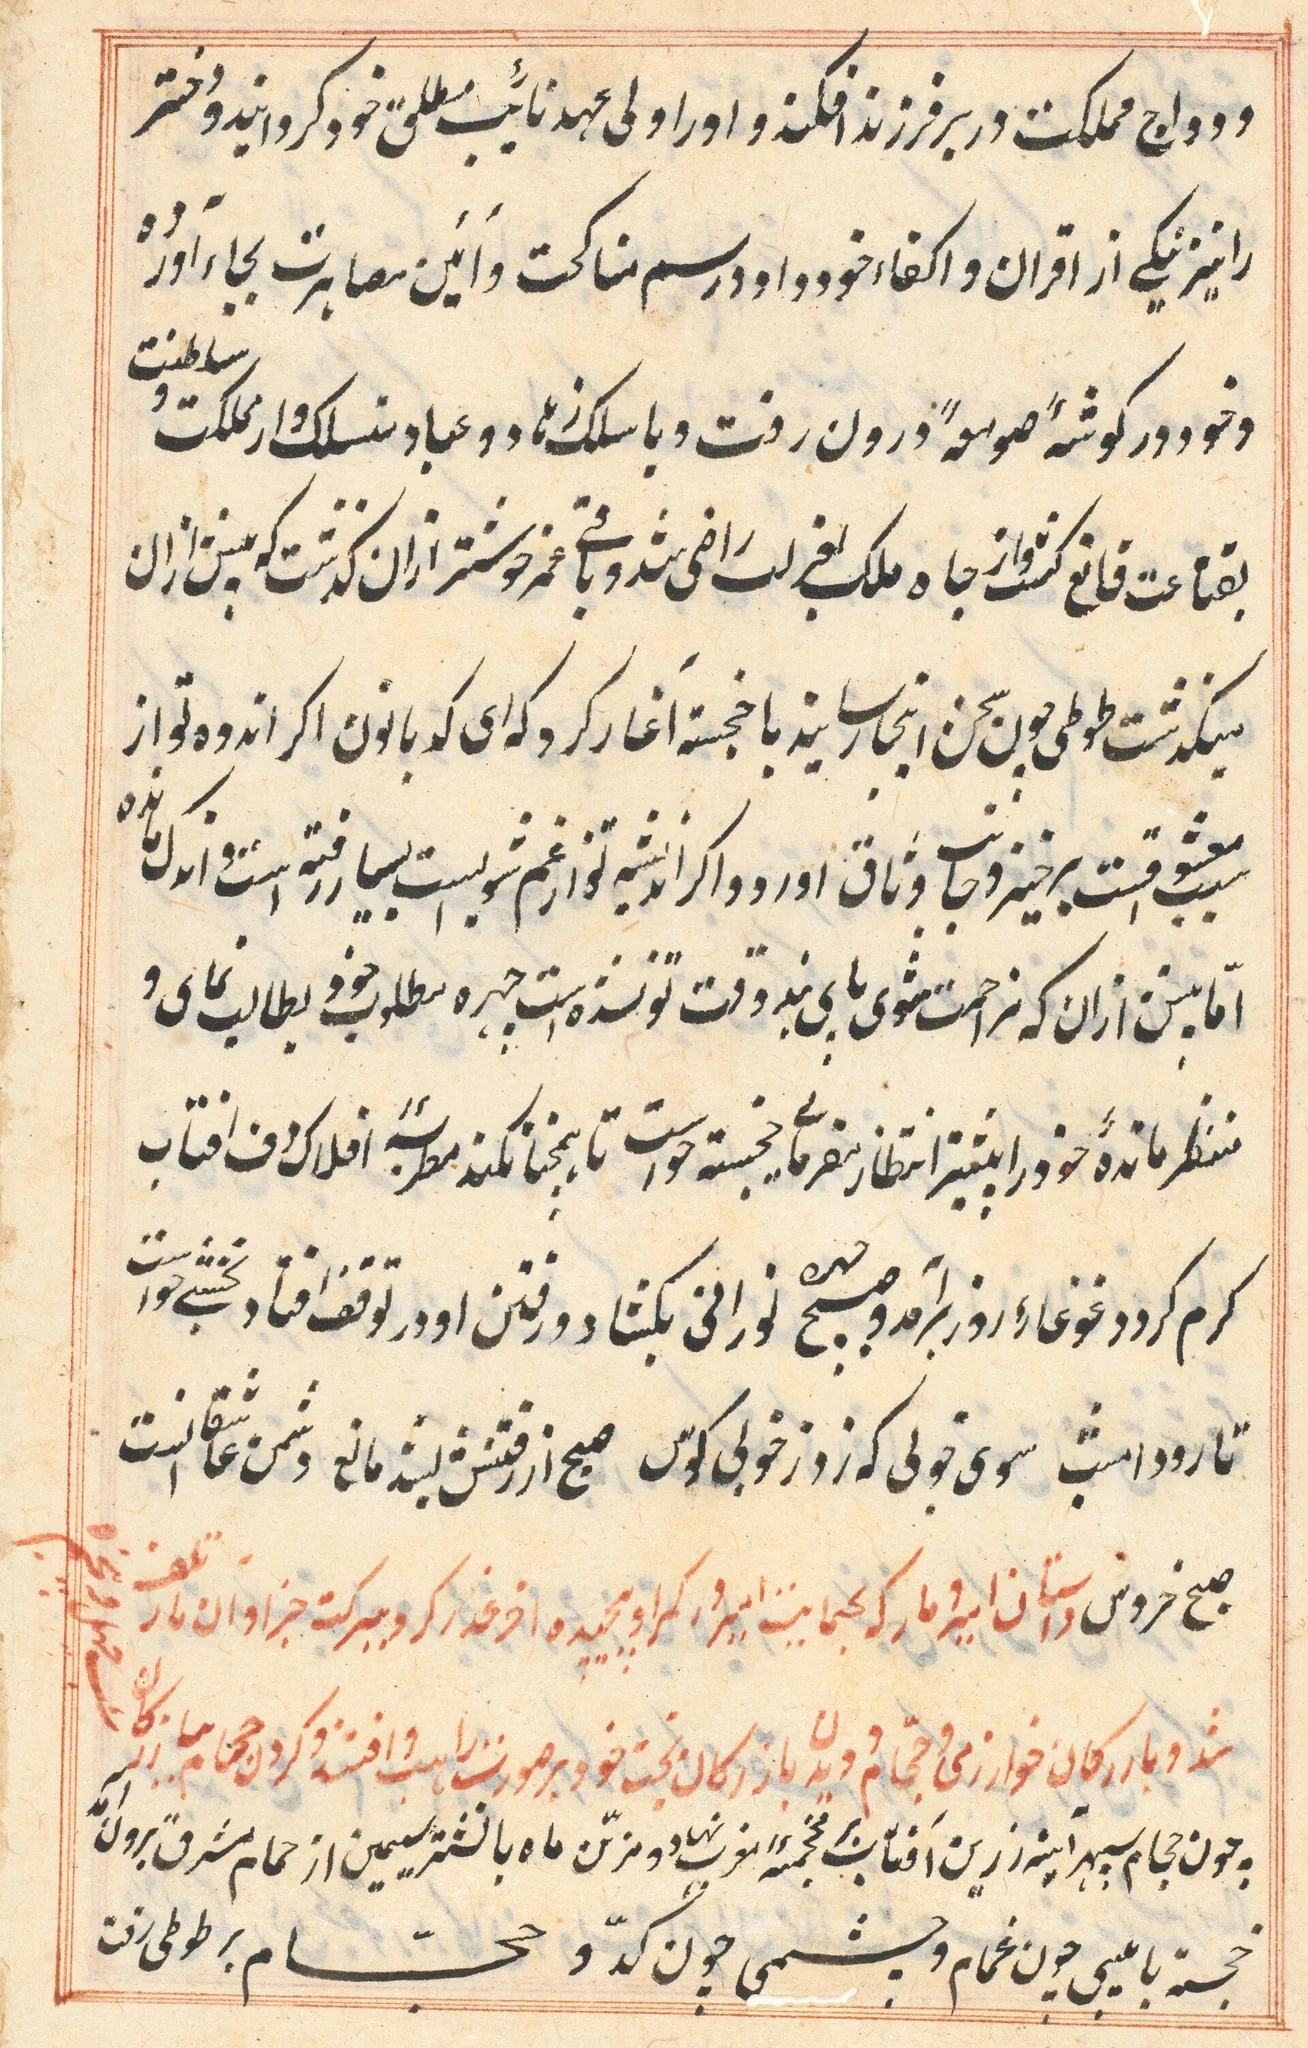 و دواج مملکت در بر فرزند افکند و او را ولی عهد نائب مطلق خود کردانید و دختر
را نیز بیکی از اقران و اکفاء خود داد و رسم مناکحت و آئین مصاهرت بجاء آورده
و خود در کوشهٔ صومعهٔ درون رفت و با سلک زهاد و عباد منسلک و از مملکت و سلطنت
بقناعت قانع کشت و از جاه ملک بعزلت راضی شد و باقی عمر خوشتر ازان کذشت که پیش ازان
میکذشت طوطی چون سخن اینجا رسانید با خجسته آغاز کرد که ای کدبانون اکر اندوه تو از
سبب معشوقست برخیز و جانب وثاق او رو و اکر اندیشه تو از غم شویست بسیار رفته است و اندک مانده
امّا پیش ازان که مزاحمت شوی پای بند وقت تو نشده است چهره مطلوب خود بطالب نمای و
منتظر ماندهٔ خود را بیشتر انتظار مفرمای خجسته خواست تا همچنان کند مطربهٔ افلاک دف افتاب
کرم کرد و غوغاء روز برآمد و صبح چهره نورانی بکشاد و رفتن او در توقف افتاد نخشبی خواست
تا رود امشب سوی خولی که زو ز خوبی کوس صبح از رفتنش بشد مانع دشمن عاشقانست
صبح خروس داستان امیر و مار که بحمایت امیر در کمر او پیچیده اخر غدر کرد و ببرکت جزاوان مار تلف
شد و بازرکان خوارزمی و حجّام و دیدن بازرکان بخت خود بر صورت راهب و افتنه کردن حجام بازرکان
چون حجام سپهر آینه زرین آفتاب در محجمهٔ مغرب نهاد و مزیّن ماه با نشتر سیمین از حمام مشرق برون آمد
خجسته با عیبی چون غمام و چشمی چون کدّو حجّام بر طوطی رفت